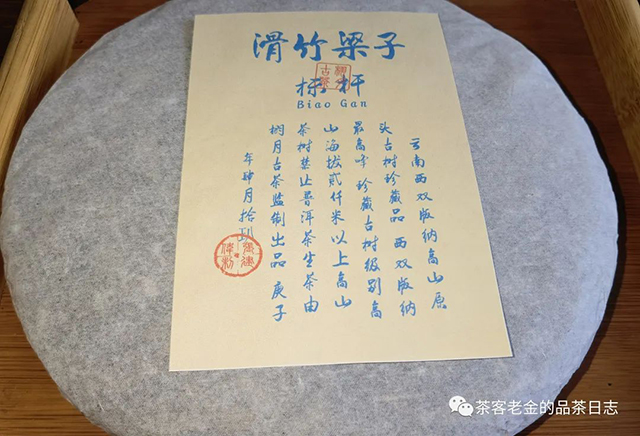 滑竹梁子
标杆
Biao Gan
古茶
云南西双版纳高山原
头古树珍藏品 西双版纳
最高峰 珍藏古树级别高
山海拔贰仟米以上高山
茶树禁止普洱茶生茶由
月古茶监制出品 庚子
年肆月拾
茶客老金的品茶日志